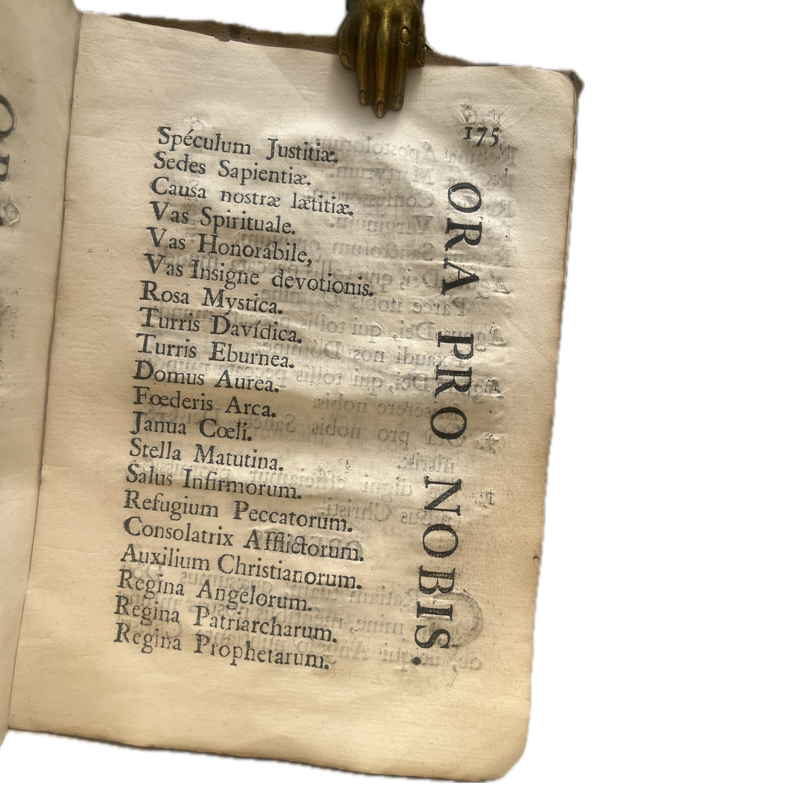 175
Spéculum Justitiæ.
Sedes Sapientiæ.
Causa nostræ lætitiæ.
Vas Spirituale.
Vas Honorábile,
Vas Insigne devotionis.
Rosa Mystica.
Turris Davídica.
Turris Eburnea.
Domus Aurea.
Fœderis Arca.
Janua Cœli.
Stella Matutina.
Salus Infirmorum.
Refugium Peccatorum.
Consolatrix Afflictorum.
Auxilium Christianorum.
Regina Angelorum.
Regina Patriarcharum.
Regina Prophetarum.
ORA PRO NOBIS.